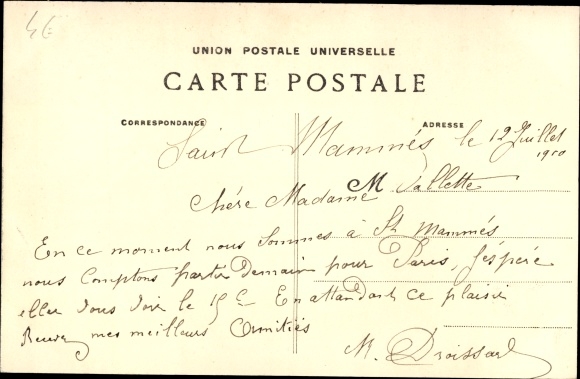 4€
UNION POSTALE UNIVERSELLE
CARTE POSTALE
CORRESPONDANCE
ADRESSE
Saint Mammés le 12 Juillet
1910
Chére Madame Vallette
M
En ce moment nous Sommes à St Mammés
nous Comptons partir Demain pour Paris, J'éspére
aller vous voir le En attendant ce plaisir
Recevez mes meilleurs Amitiés
M. Droissard